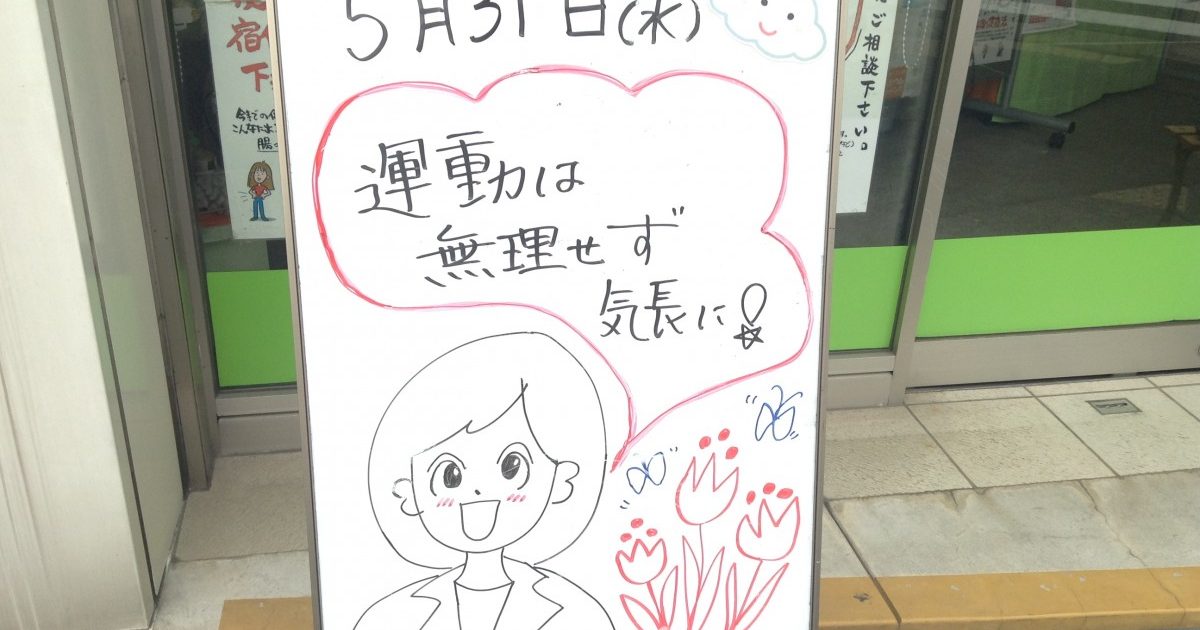 5月31日(水)
運動は
無理せず
気長に!
ご相談下さい。